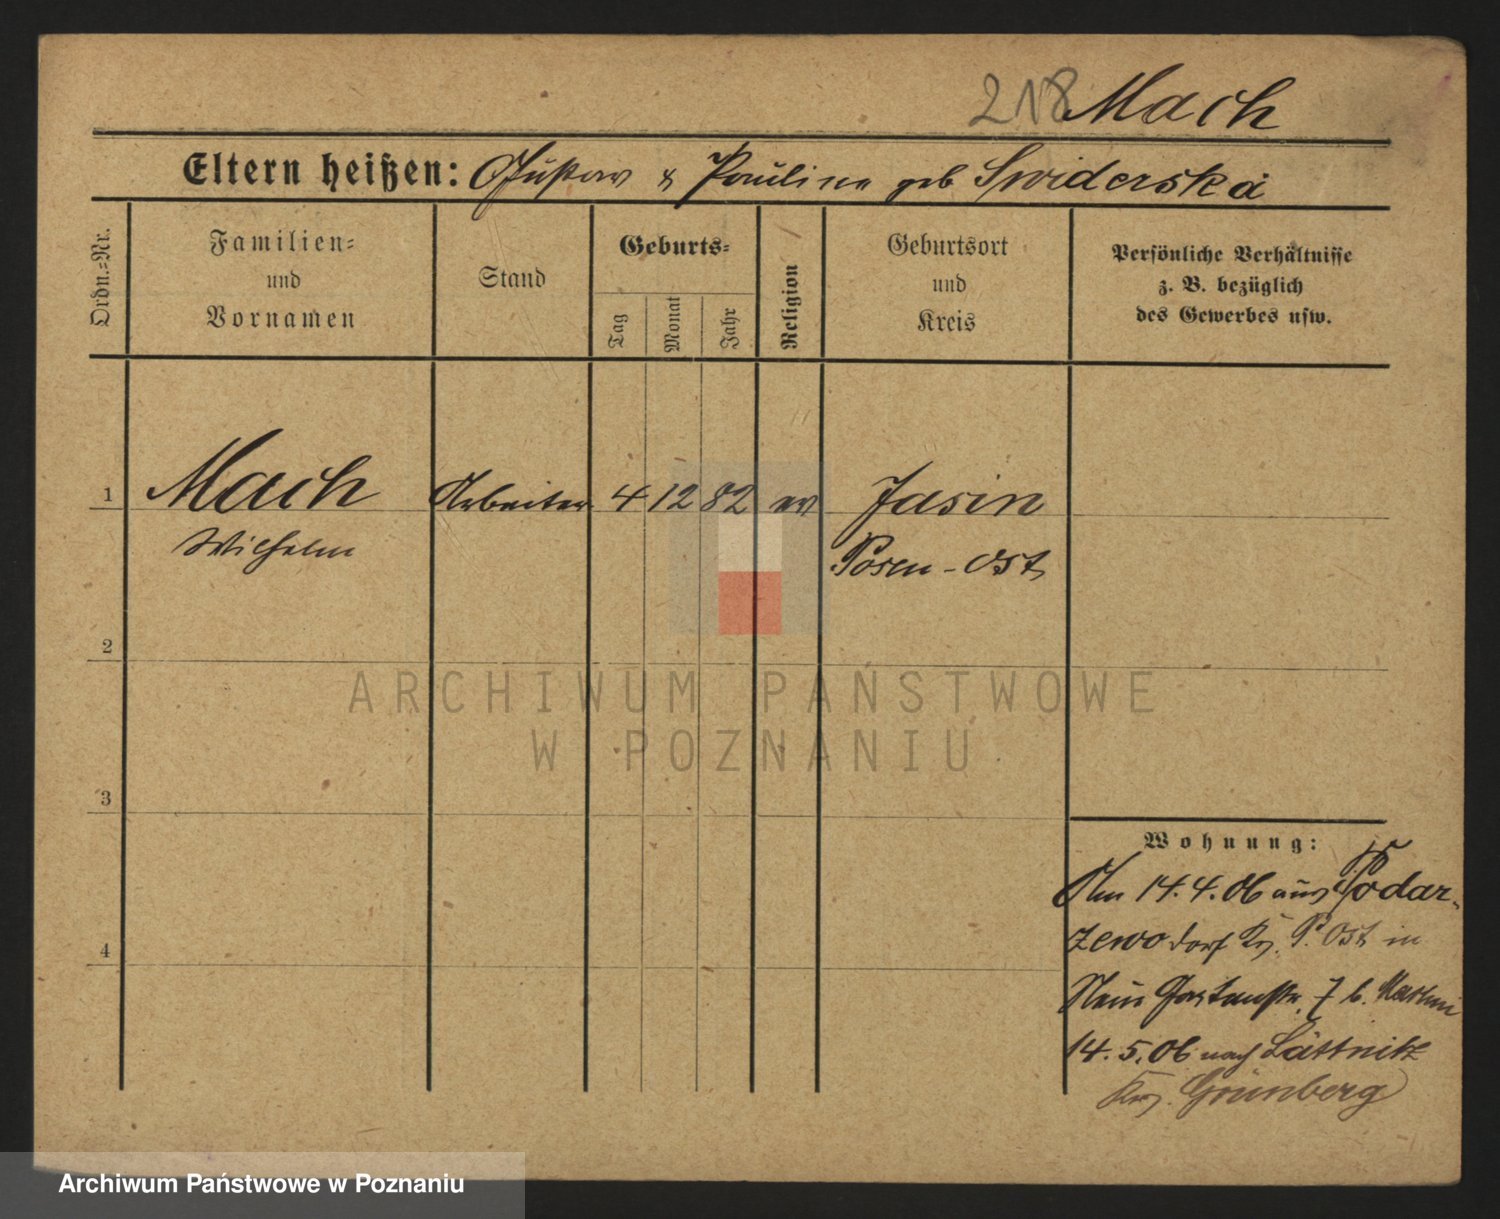 218 Mach
Eltern heißen: Gustav & Pauline geb Swiderska
Ordn.=Nr.
Familien=
und
Vornamen
Stand
Geburts=
Tag
Monat
Jahr
Religion
Geburtsort
und
Kreis
Persönliche Verhältnisse
z. B. bezüglich
des Gewerbes usw.
1 Mach Arbeiter 4 12 82 ev Jasin
Wilhelm Posen-Ost
2
3
4
ARCHIWUM PAŃSTWOWE
W POZNANIU
Wohnung:
Am 14.4.06 aus Podar-
zewo dorf Krs. P. Ost in
Neue Gartenstr. 7 b.
14.5.06 nach Lättnitz
Krs. Grünberg
Archiwum Państwowe w Poznaniu